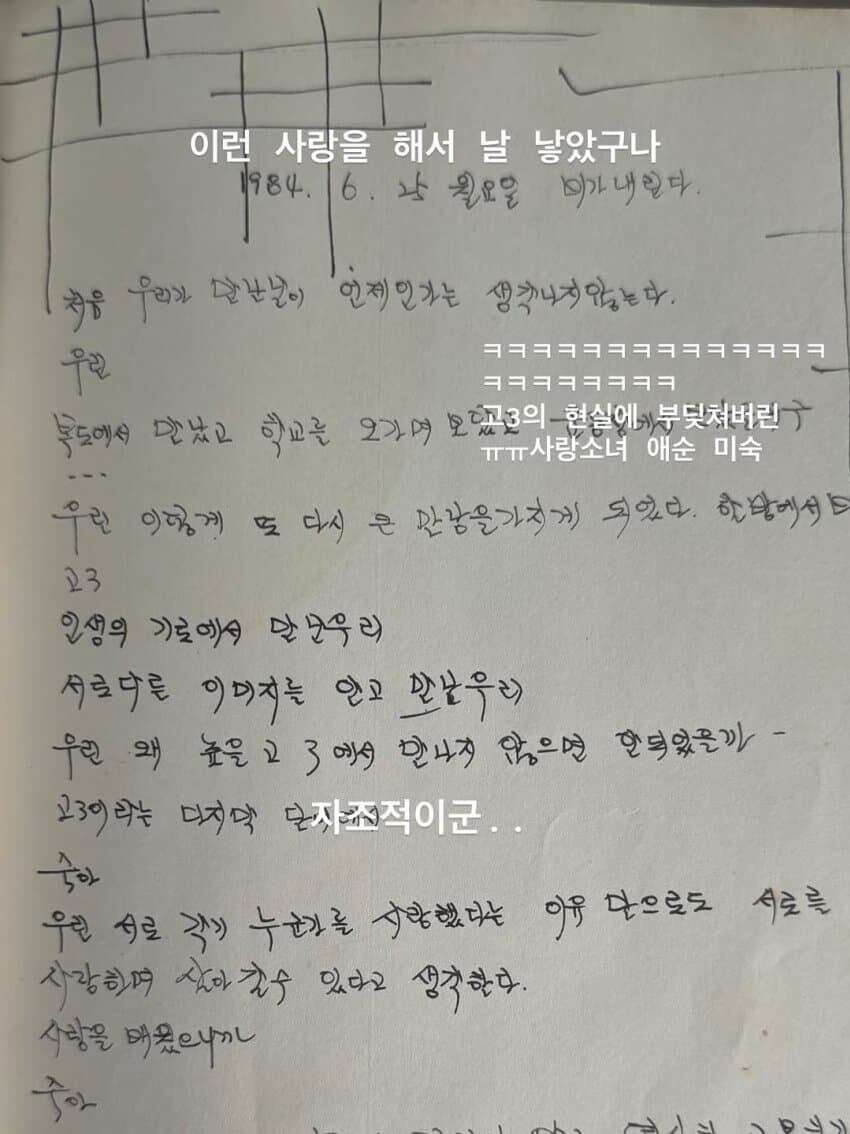 이런 사랑을 해서 날 낳았구나
1984. 6. 25 월요일 비가 내린다.
처음 우리가 만난 날이 언제인가는 생각나지 않는다.
우린
ㅋㅋㅋㅋㅋㅋㅋㅋㅋㅋㅋㅋㅋㅋ
ㅋㅋㅋㅋㅋㅋㅋㅋ
고3의 현실에 부딪쳐버린
ㅠㅠ사랑소녀 애순 미숙
복도에서 만났고 학교를 오가며
...
우린 이렇게 또 다시 큰 만남을 가지게 되었다. 한 방에서
고3
인생의 기로에서 만난 우리
서로 다른 이미지를 안고 만난 우리
우린 왜 높을 고 3에서 만나지 않으면 안되었을까 -
고3이라는 마지막
자조적이군..
숙아
우린 서로 각기 누군가를 사랑했다는 이유 만으로도 서로를
사랑하며 살아갈 수 있다고 생각한다.
사랑을 배웠으니까
숙아